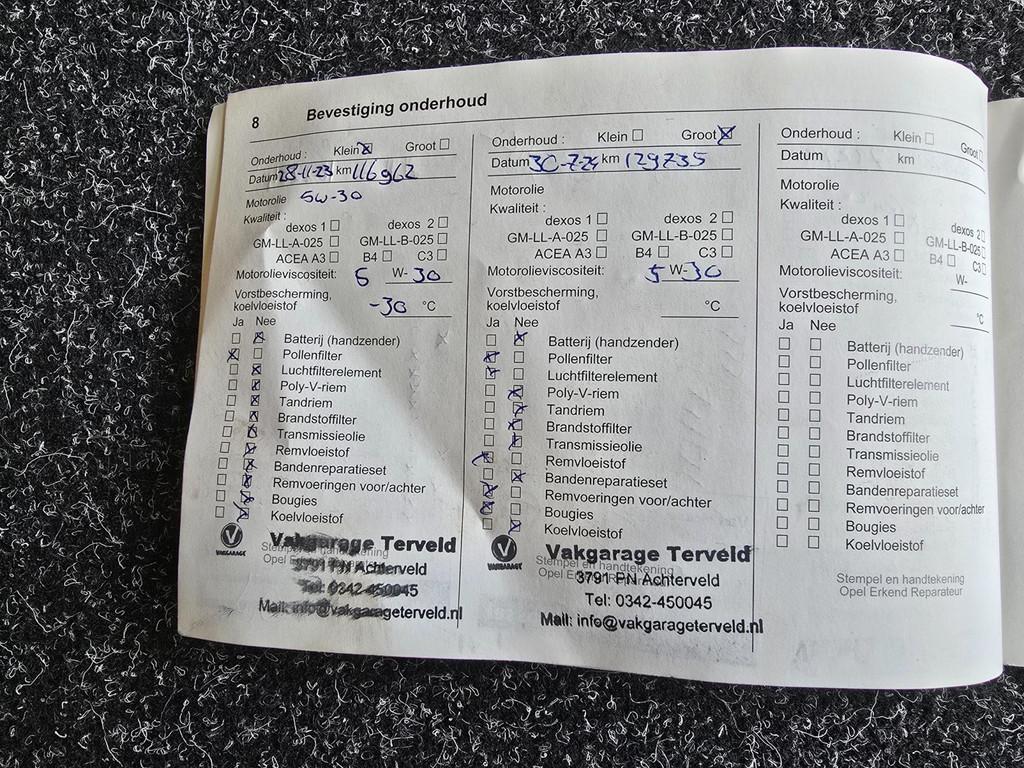 8 Bevestiging onderhoud
Onderhoud : Klein ☒ Groot ☐
Datum 28-11-23 km 116962
Motorolie 5w-30
Kwaliteit :
dexos 1 ☐ dexos 2 ☐
GM-LL-A-025 ☐ GM-LL-B-025 ☐
ACEA A3 ☐ B4 ☐ C3 ☐
Motorolieviscositeit: 5 W-30
Vorstbescherming,
koelvloeistof -30 °C
Ja Nee
Batterij (handzender)
Pollenfilter
Luchtfilterelement
Poly-V-riem
Tandriem
Brandstoffilter
Transmissieolie
Remvloeistof
Bandenreparatieset
Remvoeringen voor/achter
Bougies
Koelvloeistof
VAKGARAGE
Vakgarage Terveld
Stempel en handtekening
3791 PN Achterveld
Tel: 0342-450045
Mail: info@vakgarageterveld.nl
Onderhoud : Klein ☐ Groot ☒
Datum 30-7-24 km 129735
Motorolie
Kwaliteit :
dexos 1 ☐ dexos 2 ☐
GM-LL-A-025 ☐ GM-LL-B-025 ☐
ACEA A3 ☐ B4 ☐ C3 ☐
Motorolieviscositeit: 5 W-30
Vorstbescherming,
koelvloeistof °C
Ja Nee
Batterij (handzender)
Pollenfilter
Luchtfilterelement
Poly-V-riem
Tandriem
Brandstoffilter
Transmissieolie
Remvloeistof
Bandenreparatieset
Remvoeringen voor/achter
Bougies
Koelvloeistof
VAKGARAGE
Vakgarage Terveld
Stempel en handtekening
3791 PN Achterveld
Tel: 0342-450045
Mail: info@vakgarageterveld.nl
Onderhoud : Klein ☐ Groot ☐
Datum km
Motorolie
Kwaliteit :
dexos 1 ☐ dexos 2 ☐
GM-LL-A-025 ☐ GM-LL-B-025 ☐
ACEA A3 ☐ B4 ☐ C3 ☐
Motorolieviscositeit: W-
Vorstbescherming,
koelvloeistof °C
Ja Nee
Batterij (handzender)
Pollenfilter
Luchtfilterelement
Poly-V-riem
Tandriem
Brandstoffilter
Transmissieolie
Remvloeistof
Bandenreparatieset
Remvoeringen voor/achter
Bougies
Koelvloeistof
Stempel en handtekening
Opel Erkend Reparateur